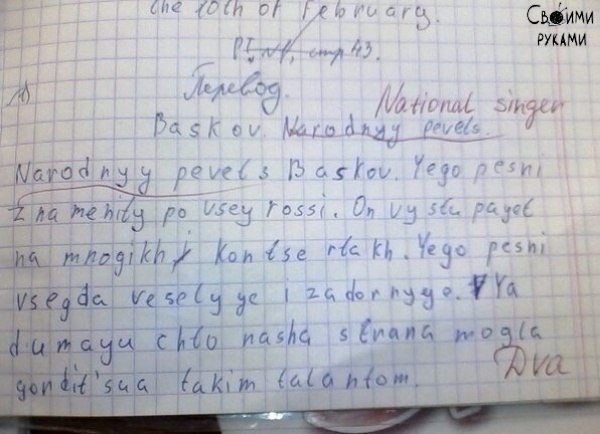 the 10th of February.
СВОИМИ
РУКАМИ
P I, N1, стр 43.
Перевод.
National singer
Baskov. Narodnyy pevets.
Narodnyy pevets Baskov. Yego pesni
znamenity po vsey rossi. On vystupayet
na mnogikh kontsertakh. Yego pesni
vsegda veselyye i zadornyye. Ya
dumayu chto nasha strana mogla
gordit'sya takim talantom.
Dva